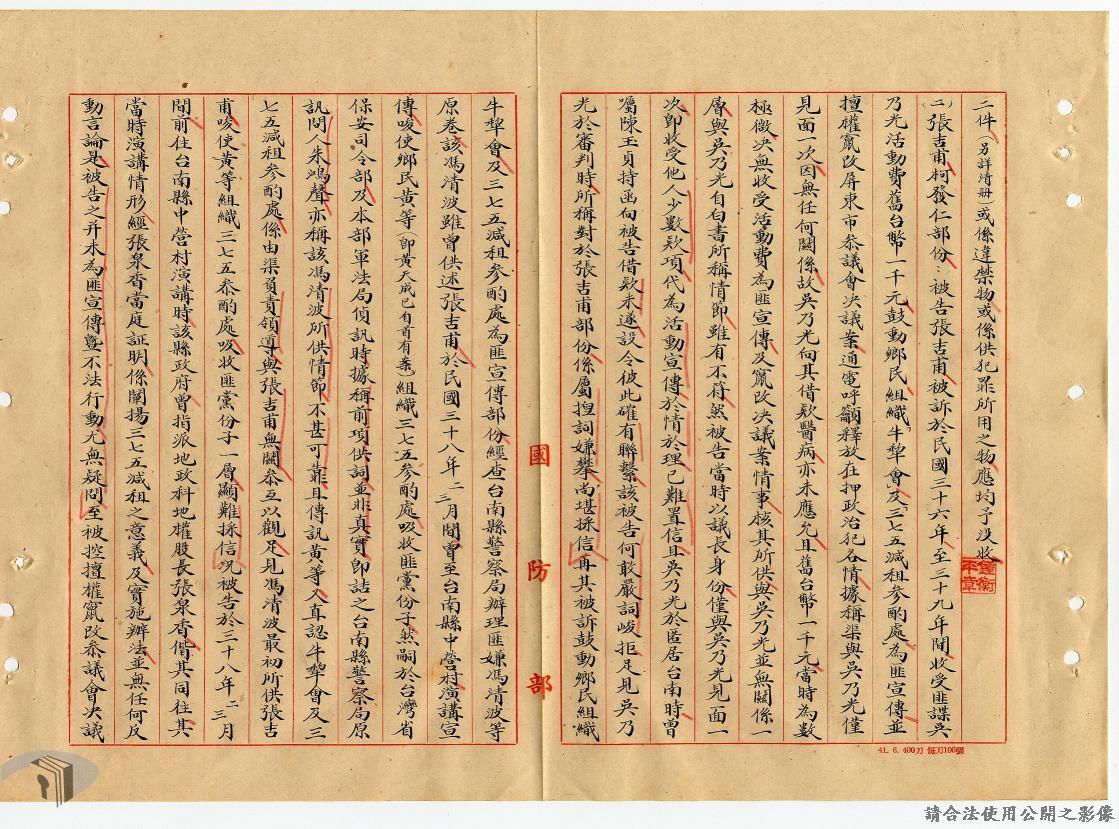 二件（另詳清冊）或係違禁物或係供犯罪所用之物應均予沒收
(二)張吉甫柯發仁部份：被告張吉甫被訴於民國三十六年至三十九年間收受匪諜吳
乃光活動費舊台幣一千元鼓動鄉民組織「牛犂會」及「三七五減租參酌處」為匪宣傳並
擅權竄改屏東市參議會決議案通電呼籲釋放在押政治犯各情據稱渠與吳乃光僅
見面一次因無任何關係故吳乃光向其借款醫病亦未應允且舊台幣一千元當時為數
極微決無收受活動費為匪宣傳及竄改決議案情事核其所供與吳乃光並無關係一
層與吳乃光自白書所稱情節雖有不符然被告當時以議長身份僅與吳乃光見面一
次即收受他人少數款項代為活動宣傳於情於理已難置信且吳乃光於匿居台南時曾
囑陳玉貞持函向被告借款未遂設令彼此確有聯繫該被告何敢嚴詞峻拒足見吳乃
光於審判時所稱對於張吉甫部份係屬捏詞嫌攀尚堪採信再其被訴鼓動鄉民組織
牛犂會及三七五減租參酌處為匪宣傳部份經查台南縣警察局辦理匪嫌馮清波等
原卷該馮清波雖曾供述張吉甫於民國三十八年二三月間曾至台南縣中營村演講宣
傳唆使鄉民黃等（即黃天成已自首有案）組織三七五參酌處吸收匪黨份子然嗣於台灣省
保安司令部及本部軍法局偵訊時據稱前項供詞並非真實即詰之台南縣警察局原
訊問人朱鴻聲亦稱該馮清波所供情節不甚可靠且傳訊黃等又直認牛犂會及三
七五減租參酌處係由渠負責領導與張吉甫無關參互以觀足見馮清波最初所供張吉
甫唆使黃等組織三七五參酌處吸收匪黨份子一層顯難採信況被告於三十八年二三月
間前往台南縣中營村演講時該縣政府曾指派地政科地權股長張泉香偕其同往其
當時演講情形經張泉香當庭証明係闡揚三七五減租之意義及實施辦法並無任何反
動言論是被告之并未為匪宣傳毫不法行動尤無疑問至被控擅權竄改參議會決議
國防部
41. 6. 400刀 每刀100張
請合法使用公開之影像